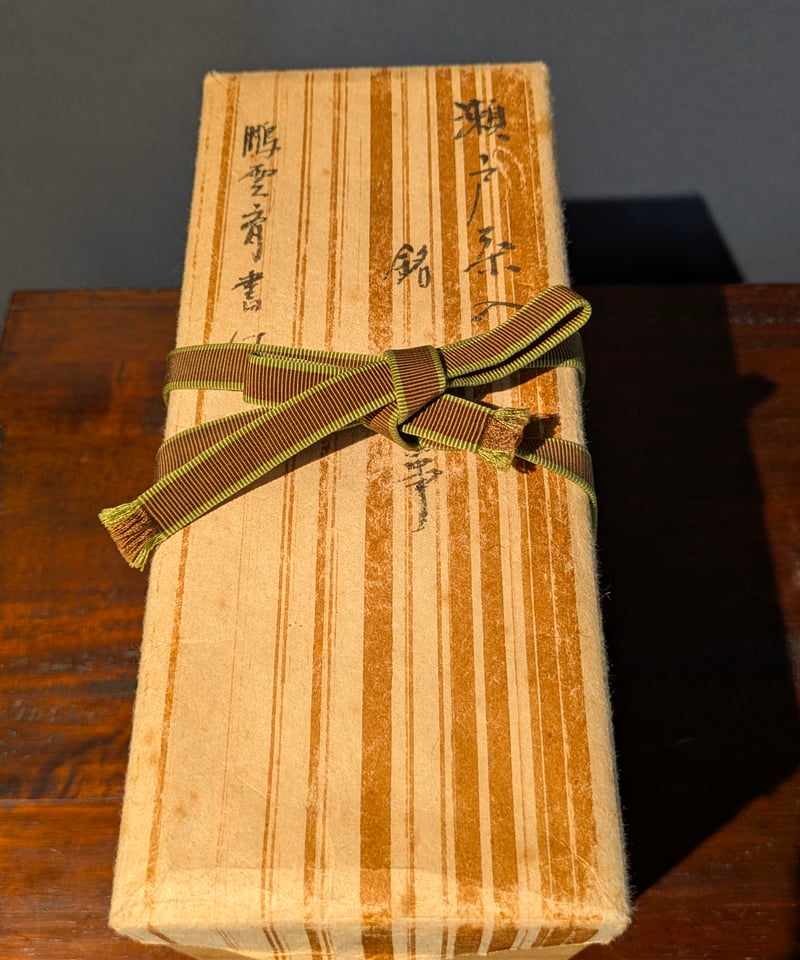 瀬戸茶入
銘
鵬雲斎書付